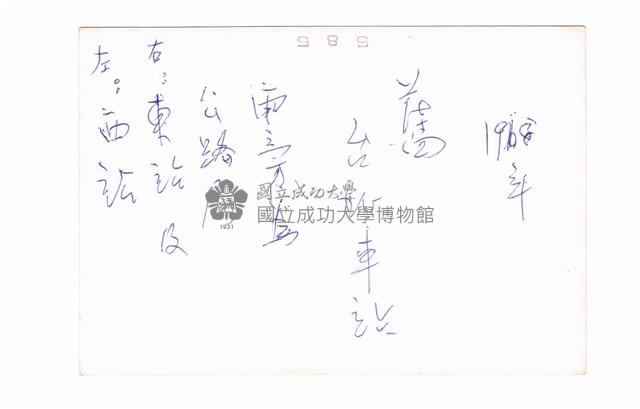 585
年
舊
台北車站
公路局
右：東站 及
左：西站
國立成功大學
國立成功大學博物館
1931